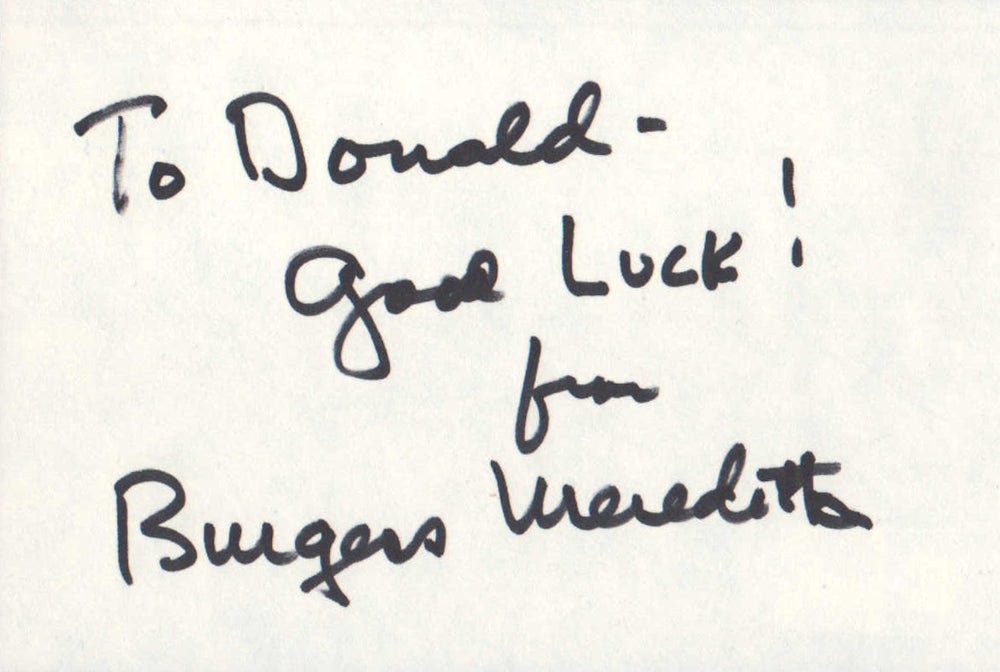 To Donald -
Good Luck!
from
Burgess Meredith